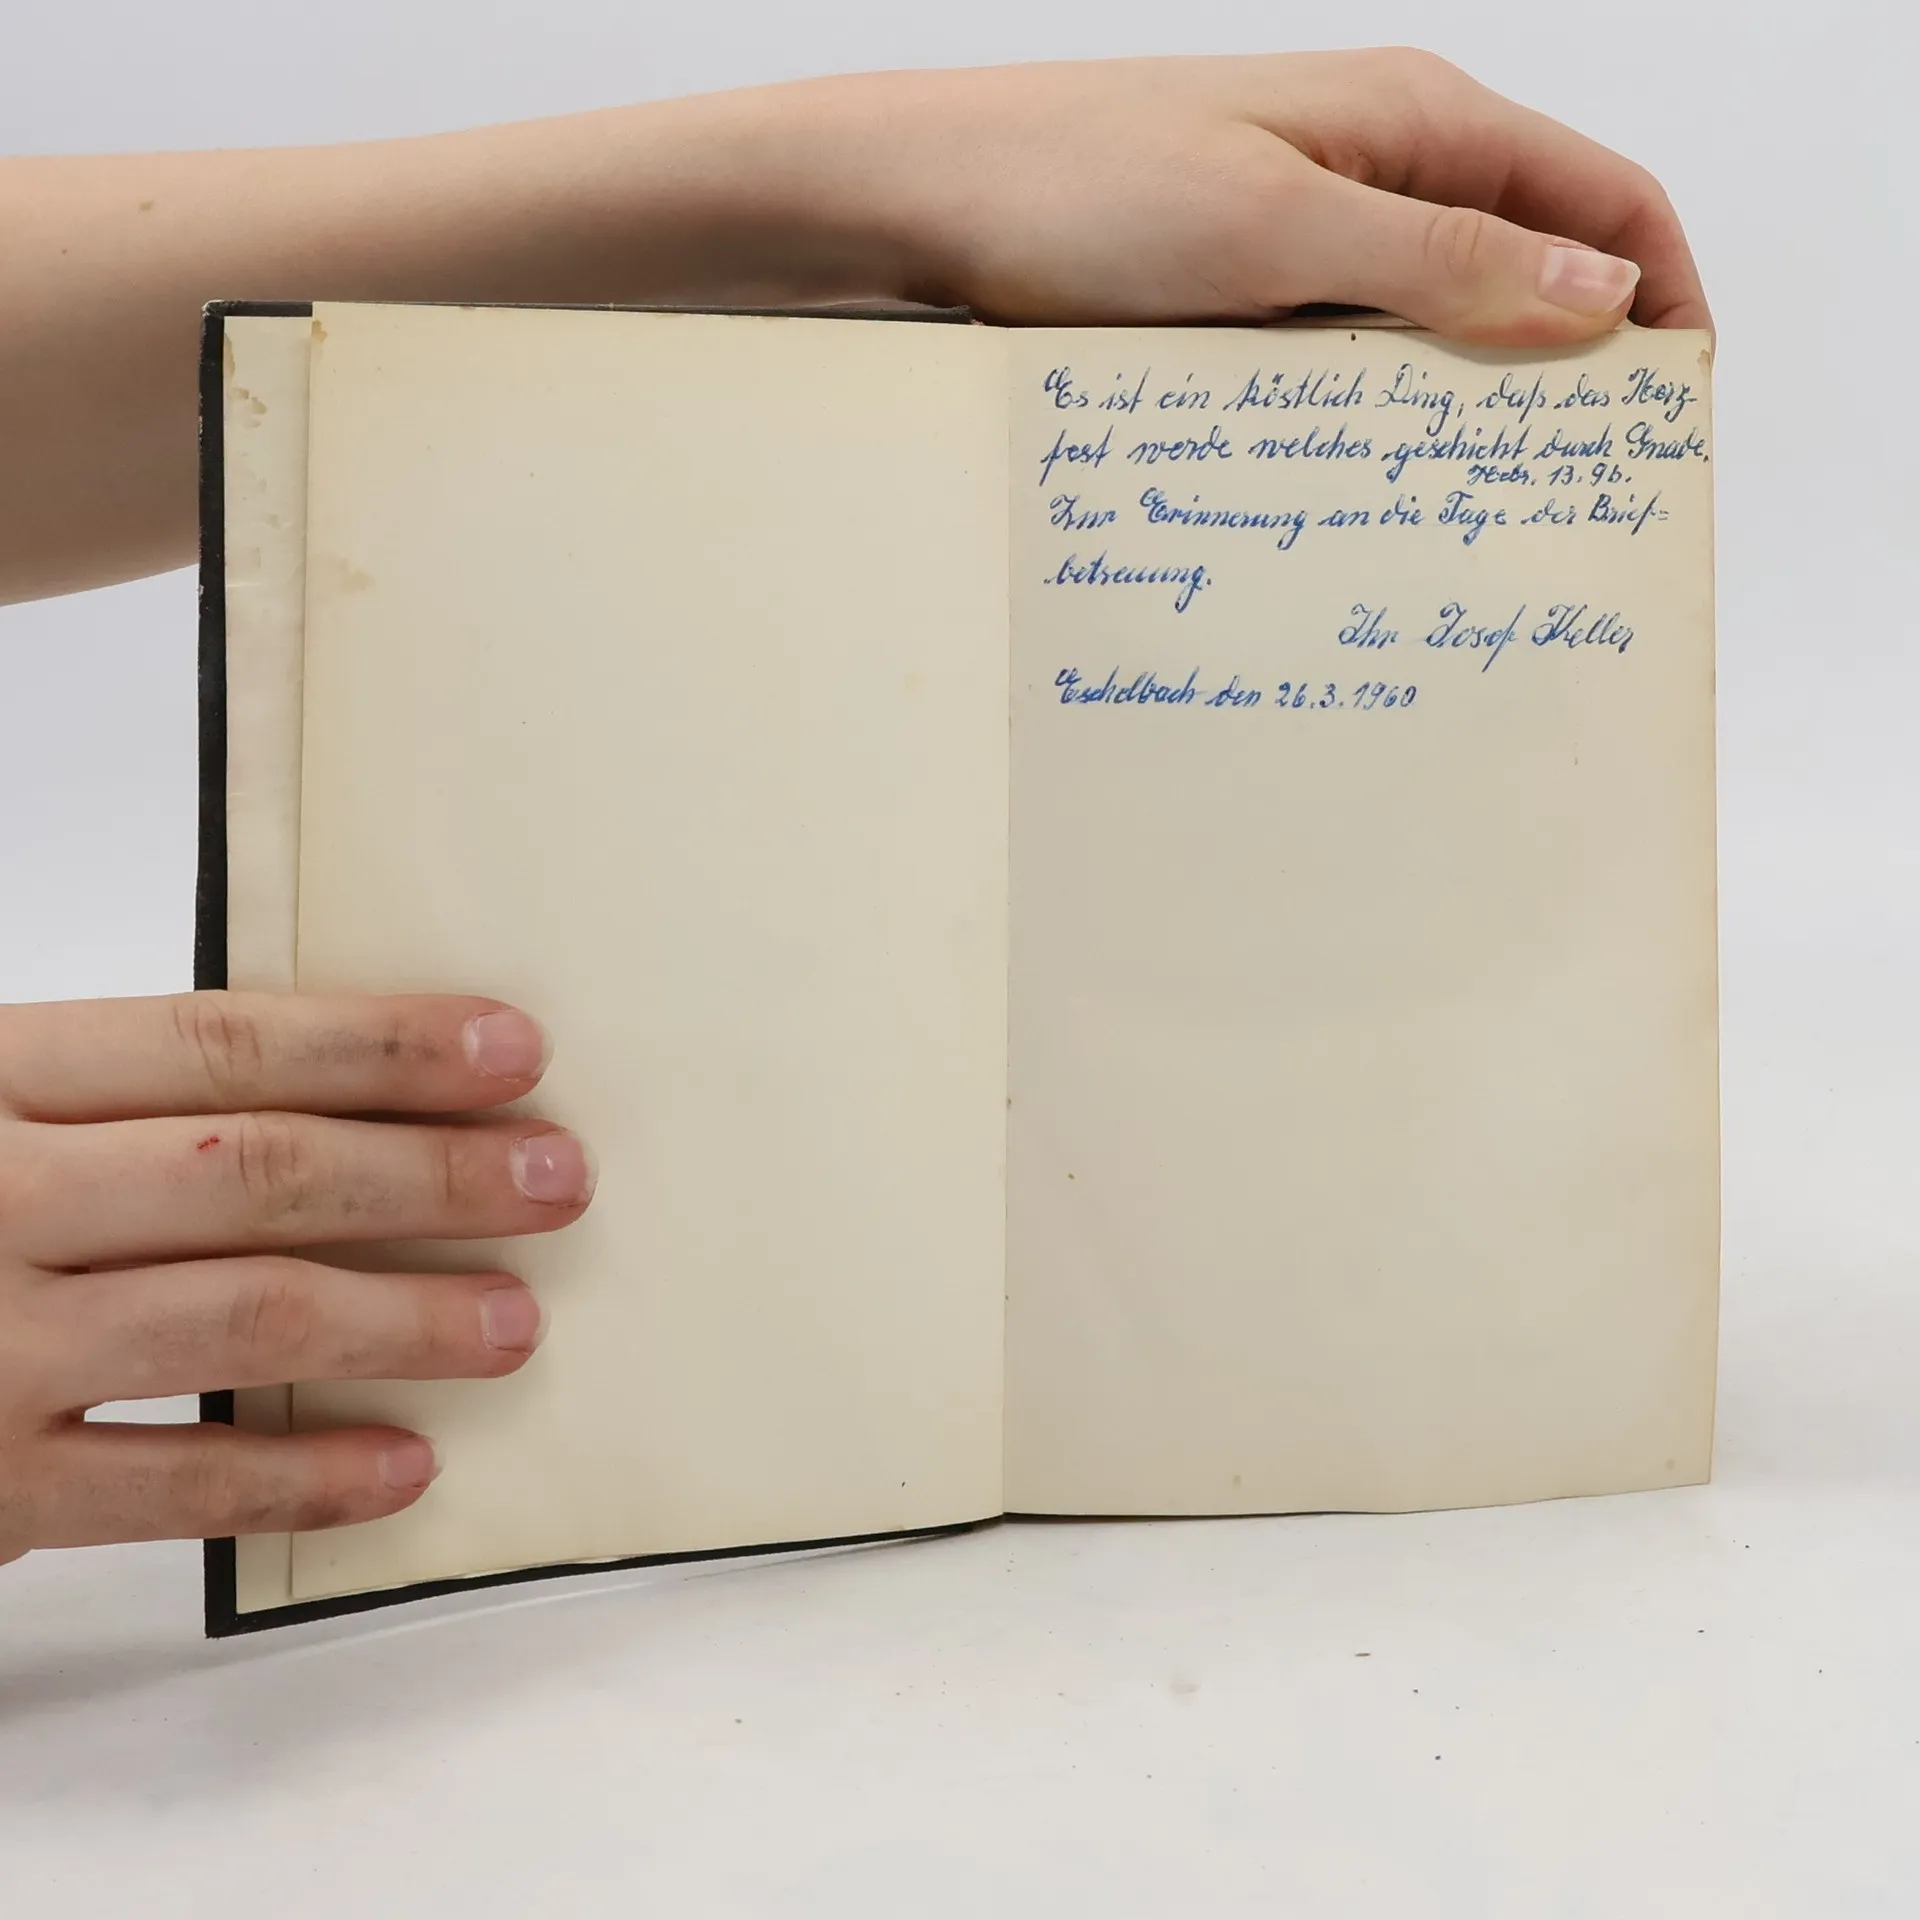 Es ist ein köstlich Ding, daß das Herz
fest werde welches geschieht durch Gnade.
Hebr. 13. 9b.
Zur Erinnerung an die Tage der Brief=
betreuung.
Ihr Josef Keller
Eschelbach den 26.3.1960